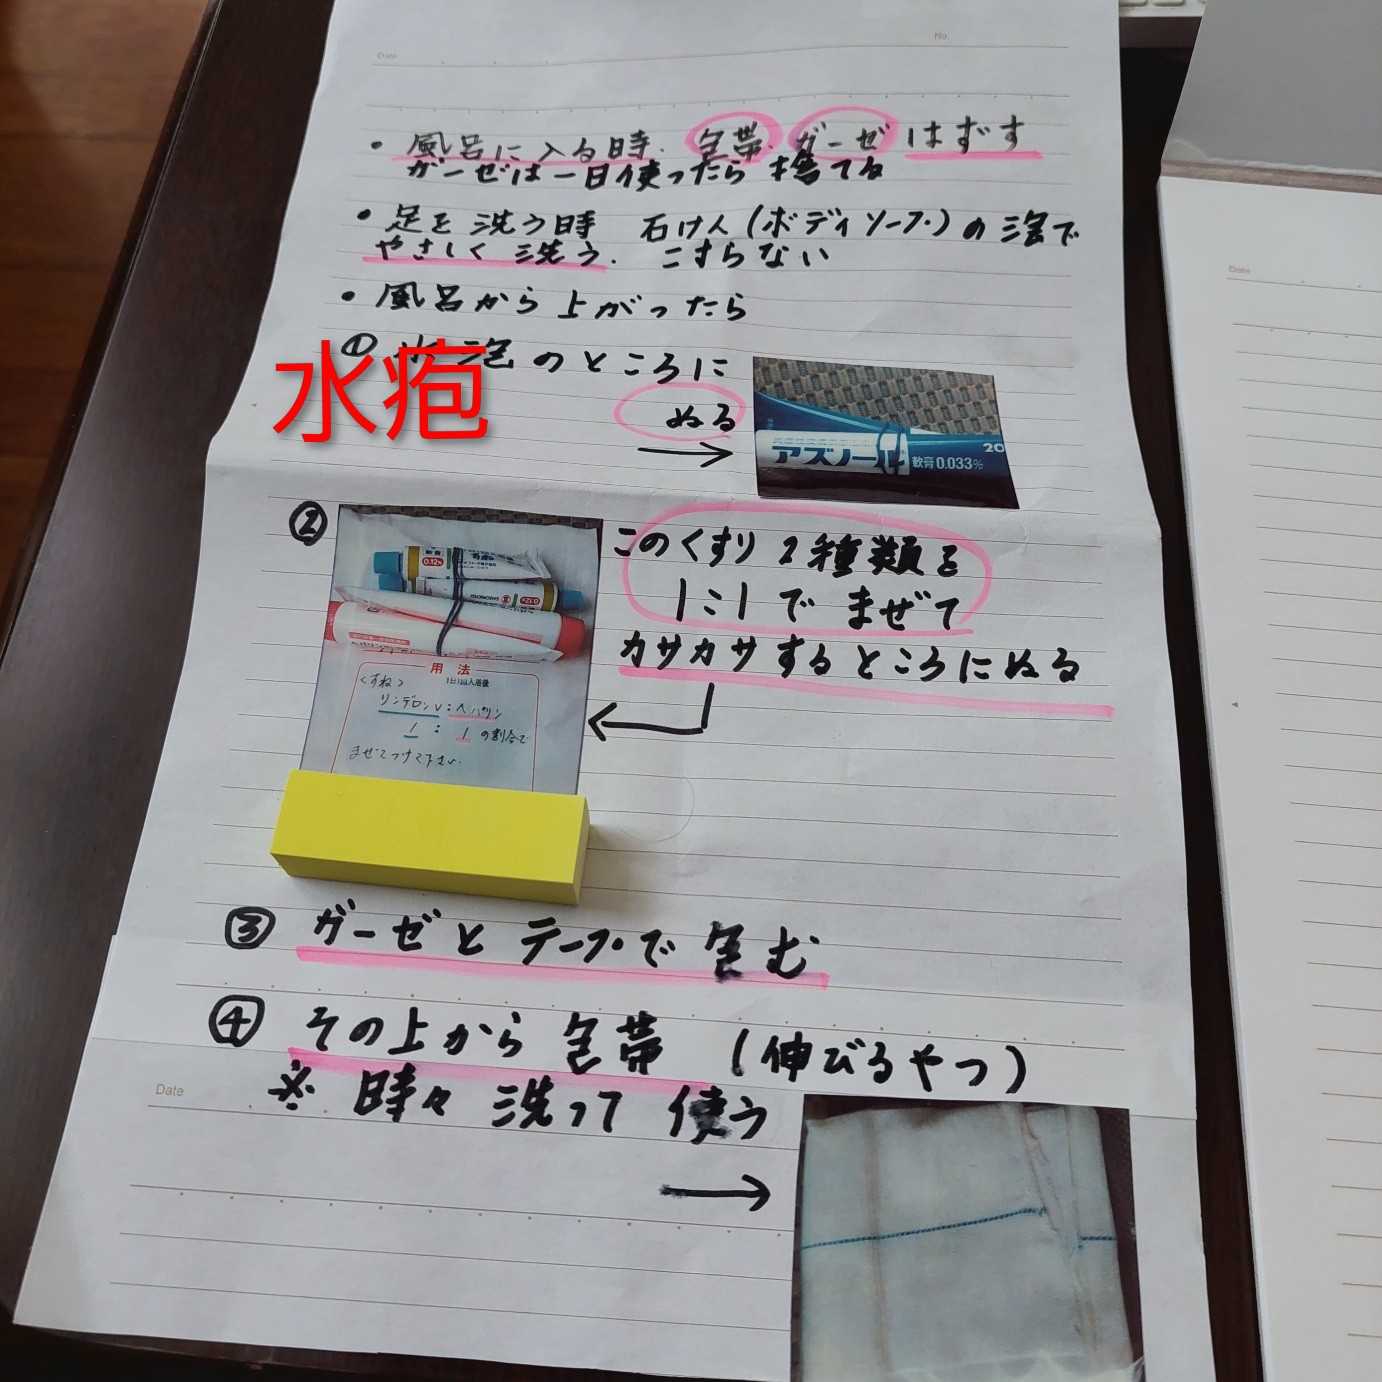 Date
No.
・風呂に入る時. 包帯. ガーゼ はずす
ガーゼは一日使ったら 捨てる
・足を 洗う時 石けん(ボディソープ)の 泡で
やさしく 洗う. こすらない
・風呂から上がったら
① 水泡のところに
水疱
ぬる
→
アズノール
軟膏0.033%
20
②
このくすり 2種類を
1:1で まぜて
カサカサするところにぬる
0.12%
用法
1日1回入浴後
<すね>
リンデロンV:ヘパリン
1:1の割合で
まぜてつけて下さい.
③ ガーゼと テープで 包む
④ その上から 包帯 (伸びるやつ)
※ 時々 洗って 使う
→
Date
Date